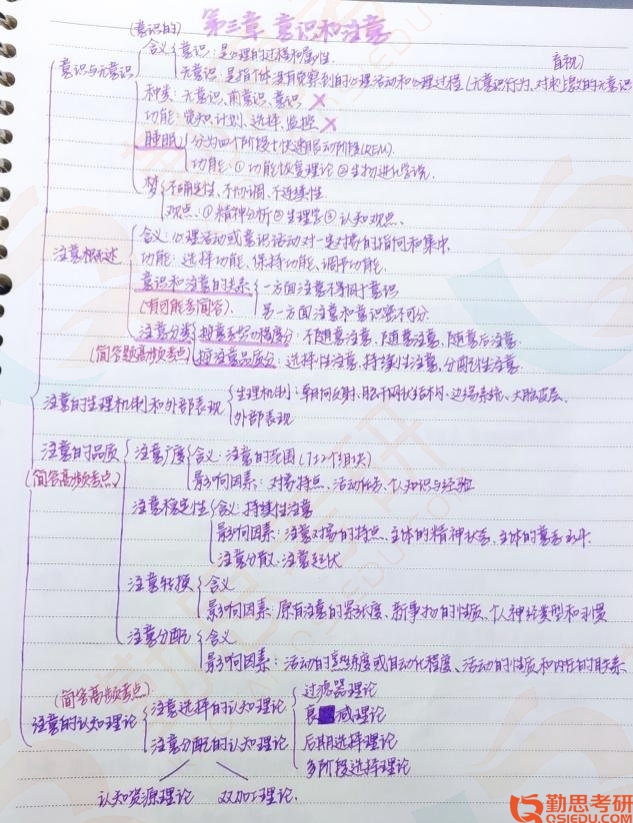 第三章 意识和注意
(意识的)
含义 意识：是心理的过程和属性.
盲视)
意识与无意识
无意识：是指个体没有觉察到的心理活动和心理过程(无意识行为、对刺激的无意识
种类：无意识、前意识、意识 ×
功能：觉知、计划、选择、监控 ×
睡眠 分为四个阶段+快速眼动阶段(REM).
功能：①功能恢复理论 ②生物进化学说.
梦 不确定性、不协调、不连续性.
观点：①精神分析②生理学③认知观点.
含义：心理活动或意识活动对一定对象的指向和集中.
注意概述
功能：选择功能、保持功能、调节功能.
意识和注意的关系 一方面注意不等同于意识
(有可能考简答). 另一方面注意和意识密不可分.
注意分类 按意志努力程度分：不随意注意、随意注意、随意后注意
(简答题高频考点) 按注意品质分：选择性注意、持续性注意、分配性注意.
注意的生理机制和外部表现 生理机制：朝向反射、脑干网状结构、边缘系统、大脑皮层.
外部表现
注意的品质 注意广度 含义：注意的范围(7±2个组块)
(简答高频考点) 影响因素：对象特点、活动任务、个人知识与经验
注意稳定性 含义：持续性注意
影响因素：注意对象的特点、主体的精神状态、主体的意志水平.
注意分散.注意起伏
注意转换 含义
影响因素：原有注意的紧张度、新事物的性质、个人神经类型和习惯
注意分配 含义
影响因素：活动的熟练度或自动化程度、活动的性质和内在的联系.
(简答高频考点) 过滤器理论
注意的认知理论 注意选择的认知理论 衰减理论
注意分配的认知理论 后期选择理论
多阶段选择理论
认知资源理论 双加工理论.
勤思考研
QSIEDU.COM